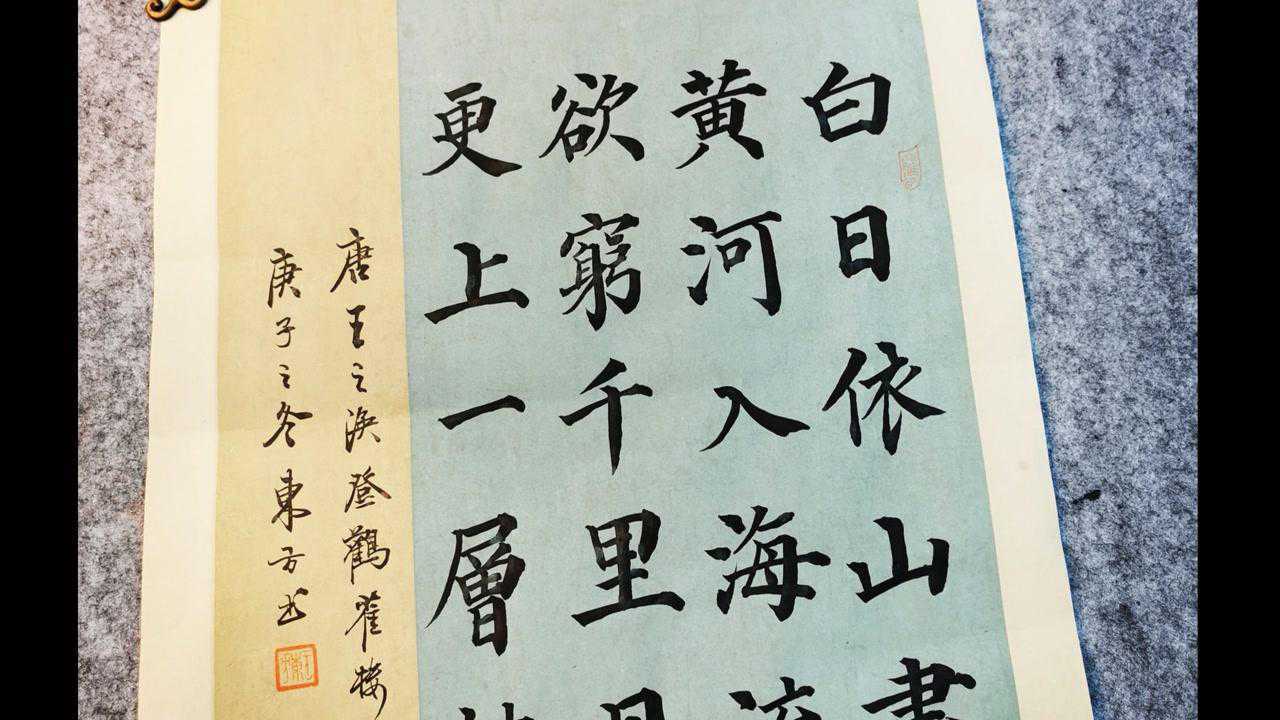 白日依山盡
黄河入海流
欲窮千里目
更上一層
唐王之渙登鸛雀楼
庚子之冬東方书